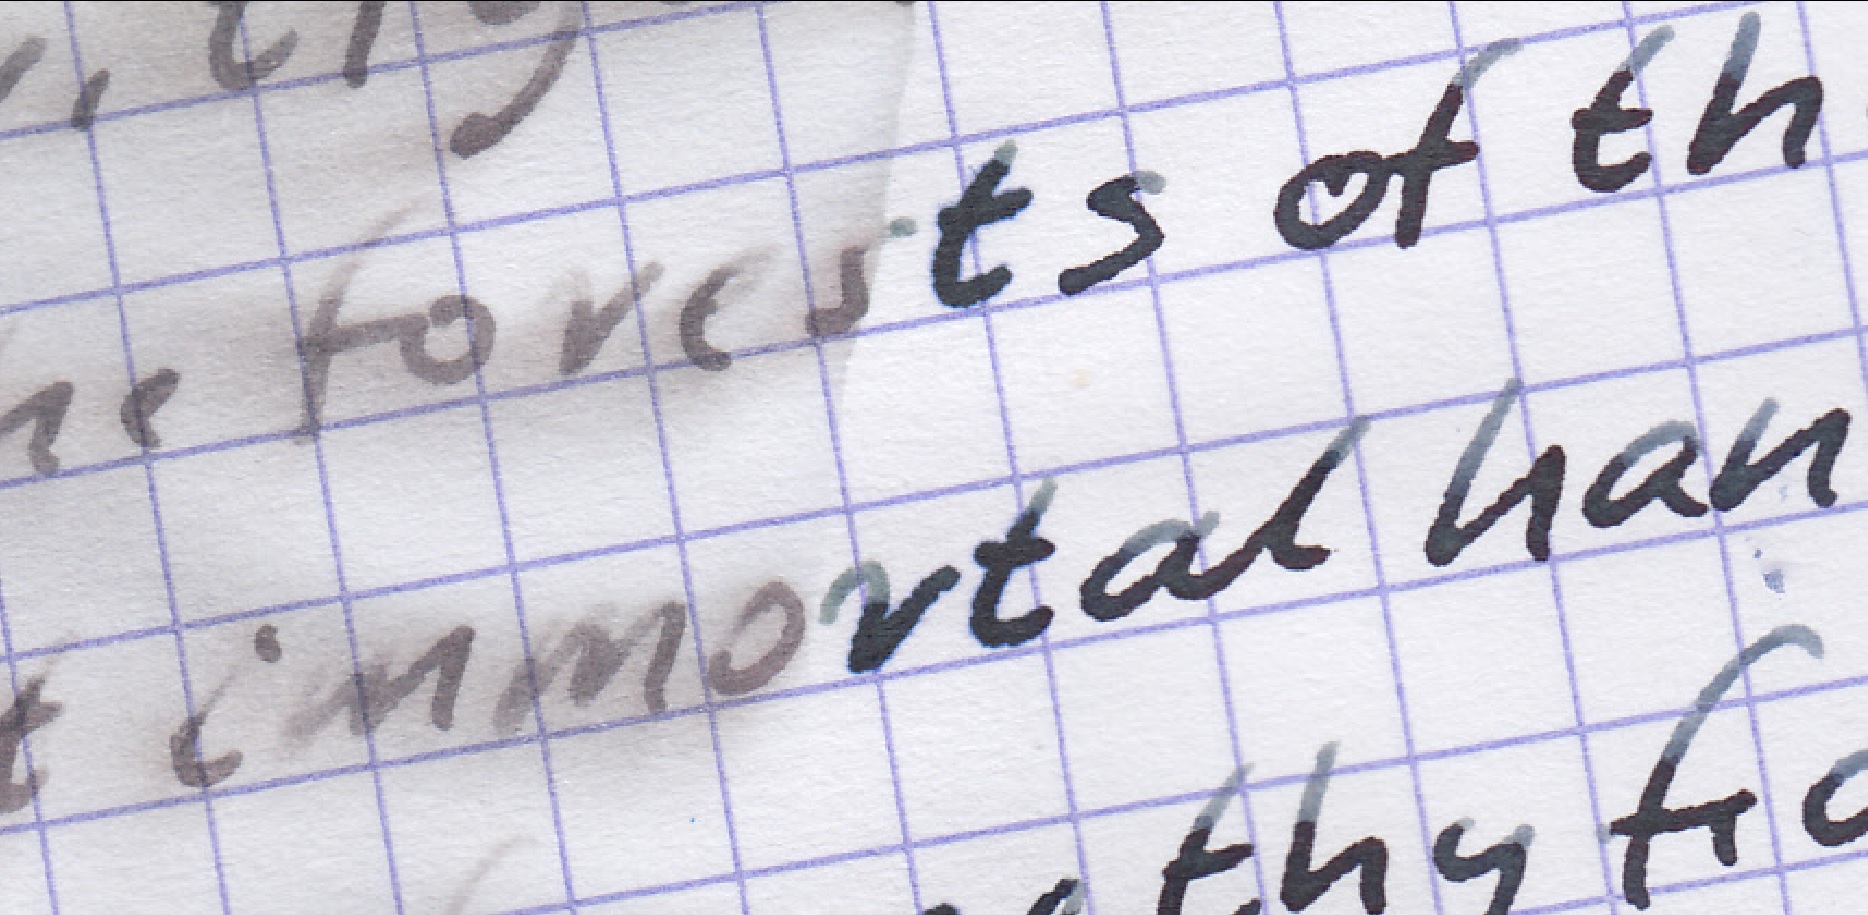 , tyg
he forests of th
t immortal han
thy fra